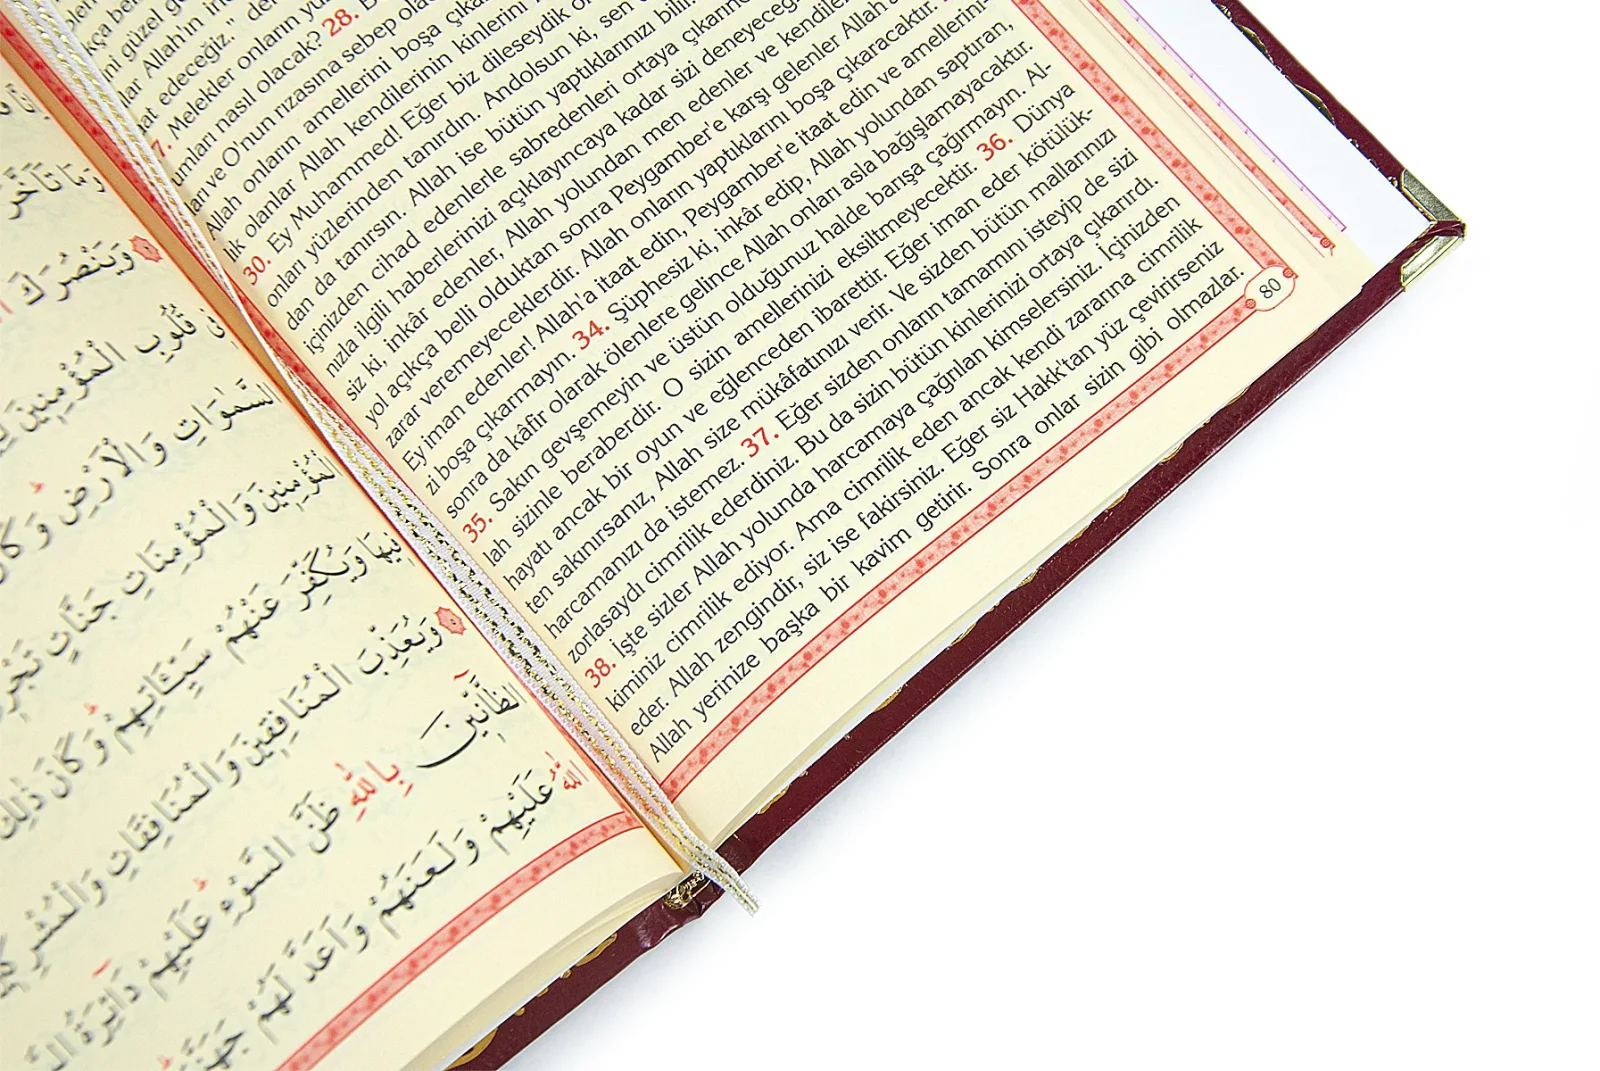 güzel
Allah'ın
edeceğiz." 
Melekler onların
nasıl olacak? 28.
ve O'nun rızasına sebep
Allah onların amellerini boşa
olanlar Allah kendilerinin kinlerini
30. Ey Muhammed! Eğer biz dileseydik
onları yüzlerinden tanırdın. Andolsun ki, sen
dan da tanırsın. Allah ise bütün yaptıklarınızı bilir.
İçinizden cihad edenlerle sabredenleri ortaya
nızla ilgili haberlerinizi açıklayıncaya kadar sizi
siz ki, inkâr edenler, Allah yolundan men edenler ve
yol açıkça belli olduktan sonra Peygamber'e karşı gelenler Allah'a
zarar veremeyeceklerdir. Allah onların yaptıklarını boşa çıkaracaktır.
Ey iman edenler! Allah'a itaat edin, Peygamber'e itaat edin ve amellerini-
zi boşa çıkarmayın. 34. Şüphesiz ki, inkâr edip, Allah yolundan saptıran,
sonra da kâfir olarak ölenlere gelince Allah onları asla bağışlamayacaktır.
35. Sakın gevşemeyin ve üstün olduğunuz halde barışa çağırmayın. Al-
lah sizinle beraberdir. O sizin amellerinizi eksiltmeyecektir. 36. Dünya
hayatı ancak bir oyun ve eğlenceden ibarettir. Eğer iman eder kötülük-
ten sakınırsanız, Allah size mükâfatınızı verir. Ve sizden bütün mallarınızı
harcamanızı da istemez. 37. Eğer sizden onların tamamını isteyip de sizi
zorlasaydı cimrilik ederdiniz. Bu da sizin bütün kinlerinizi ortaya çıkarırdı.
38. İşte sizler Allah yolunda harcamaya çağrılan kimselersiniz. İçinizden
kiminiz cimrilik ediyor. Ama cimrilik eden ancak kendi zararına cimrilik
eder. Allah zengindir, siz ise fakirsiniz. Eğer siz Hakk'tan yüz çevirirseniz
Allah yerinize başka bir kavim getirir. Sonra onlar sizin gibi olmazlar.
80
وَمَا تَاَخَّرَ
وَيَنْصُرَكَ
قُلُوبِ الْمُؤْمِنِينَ
السَّمٰوَاتِ وَالْاَرْضِ وَكَانَ
الْمُؤْمِنِينَ وَالْمُؤْمِنَاتِ جَنَّاتٍ تَجْرِي
فِيهَا وَيُكَفِّرَ عَنْهُمْ سَيِّئَاتِهِمْ وَكَانَ ذٰلِكَ
وَيُعَذِّبَ الْمُنَافِقِينَ وَالْمُنَافِقَاتِ وَالْمُشْرِكِينَ
الظَّٓانِّينَ بِاللّٰهِ ظَنَّ السَّوْءِ عَلَيْهِمْ دَٓائِرَةُ
اللّٰهُ عَلَيْهِمْ وَلَعَنَهُمْ وَاَعَدَّ لَهُمْ جَهَنَّمَ